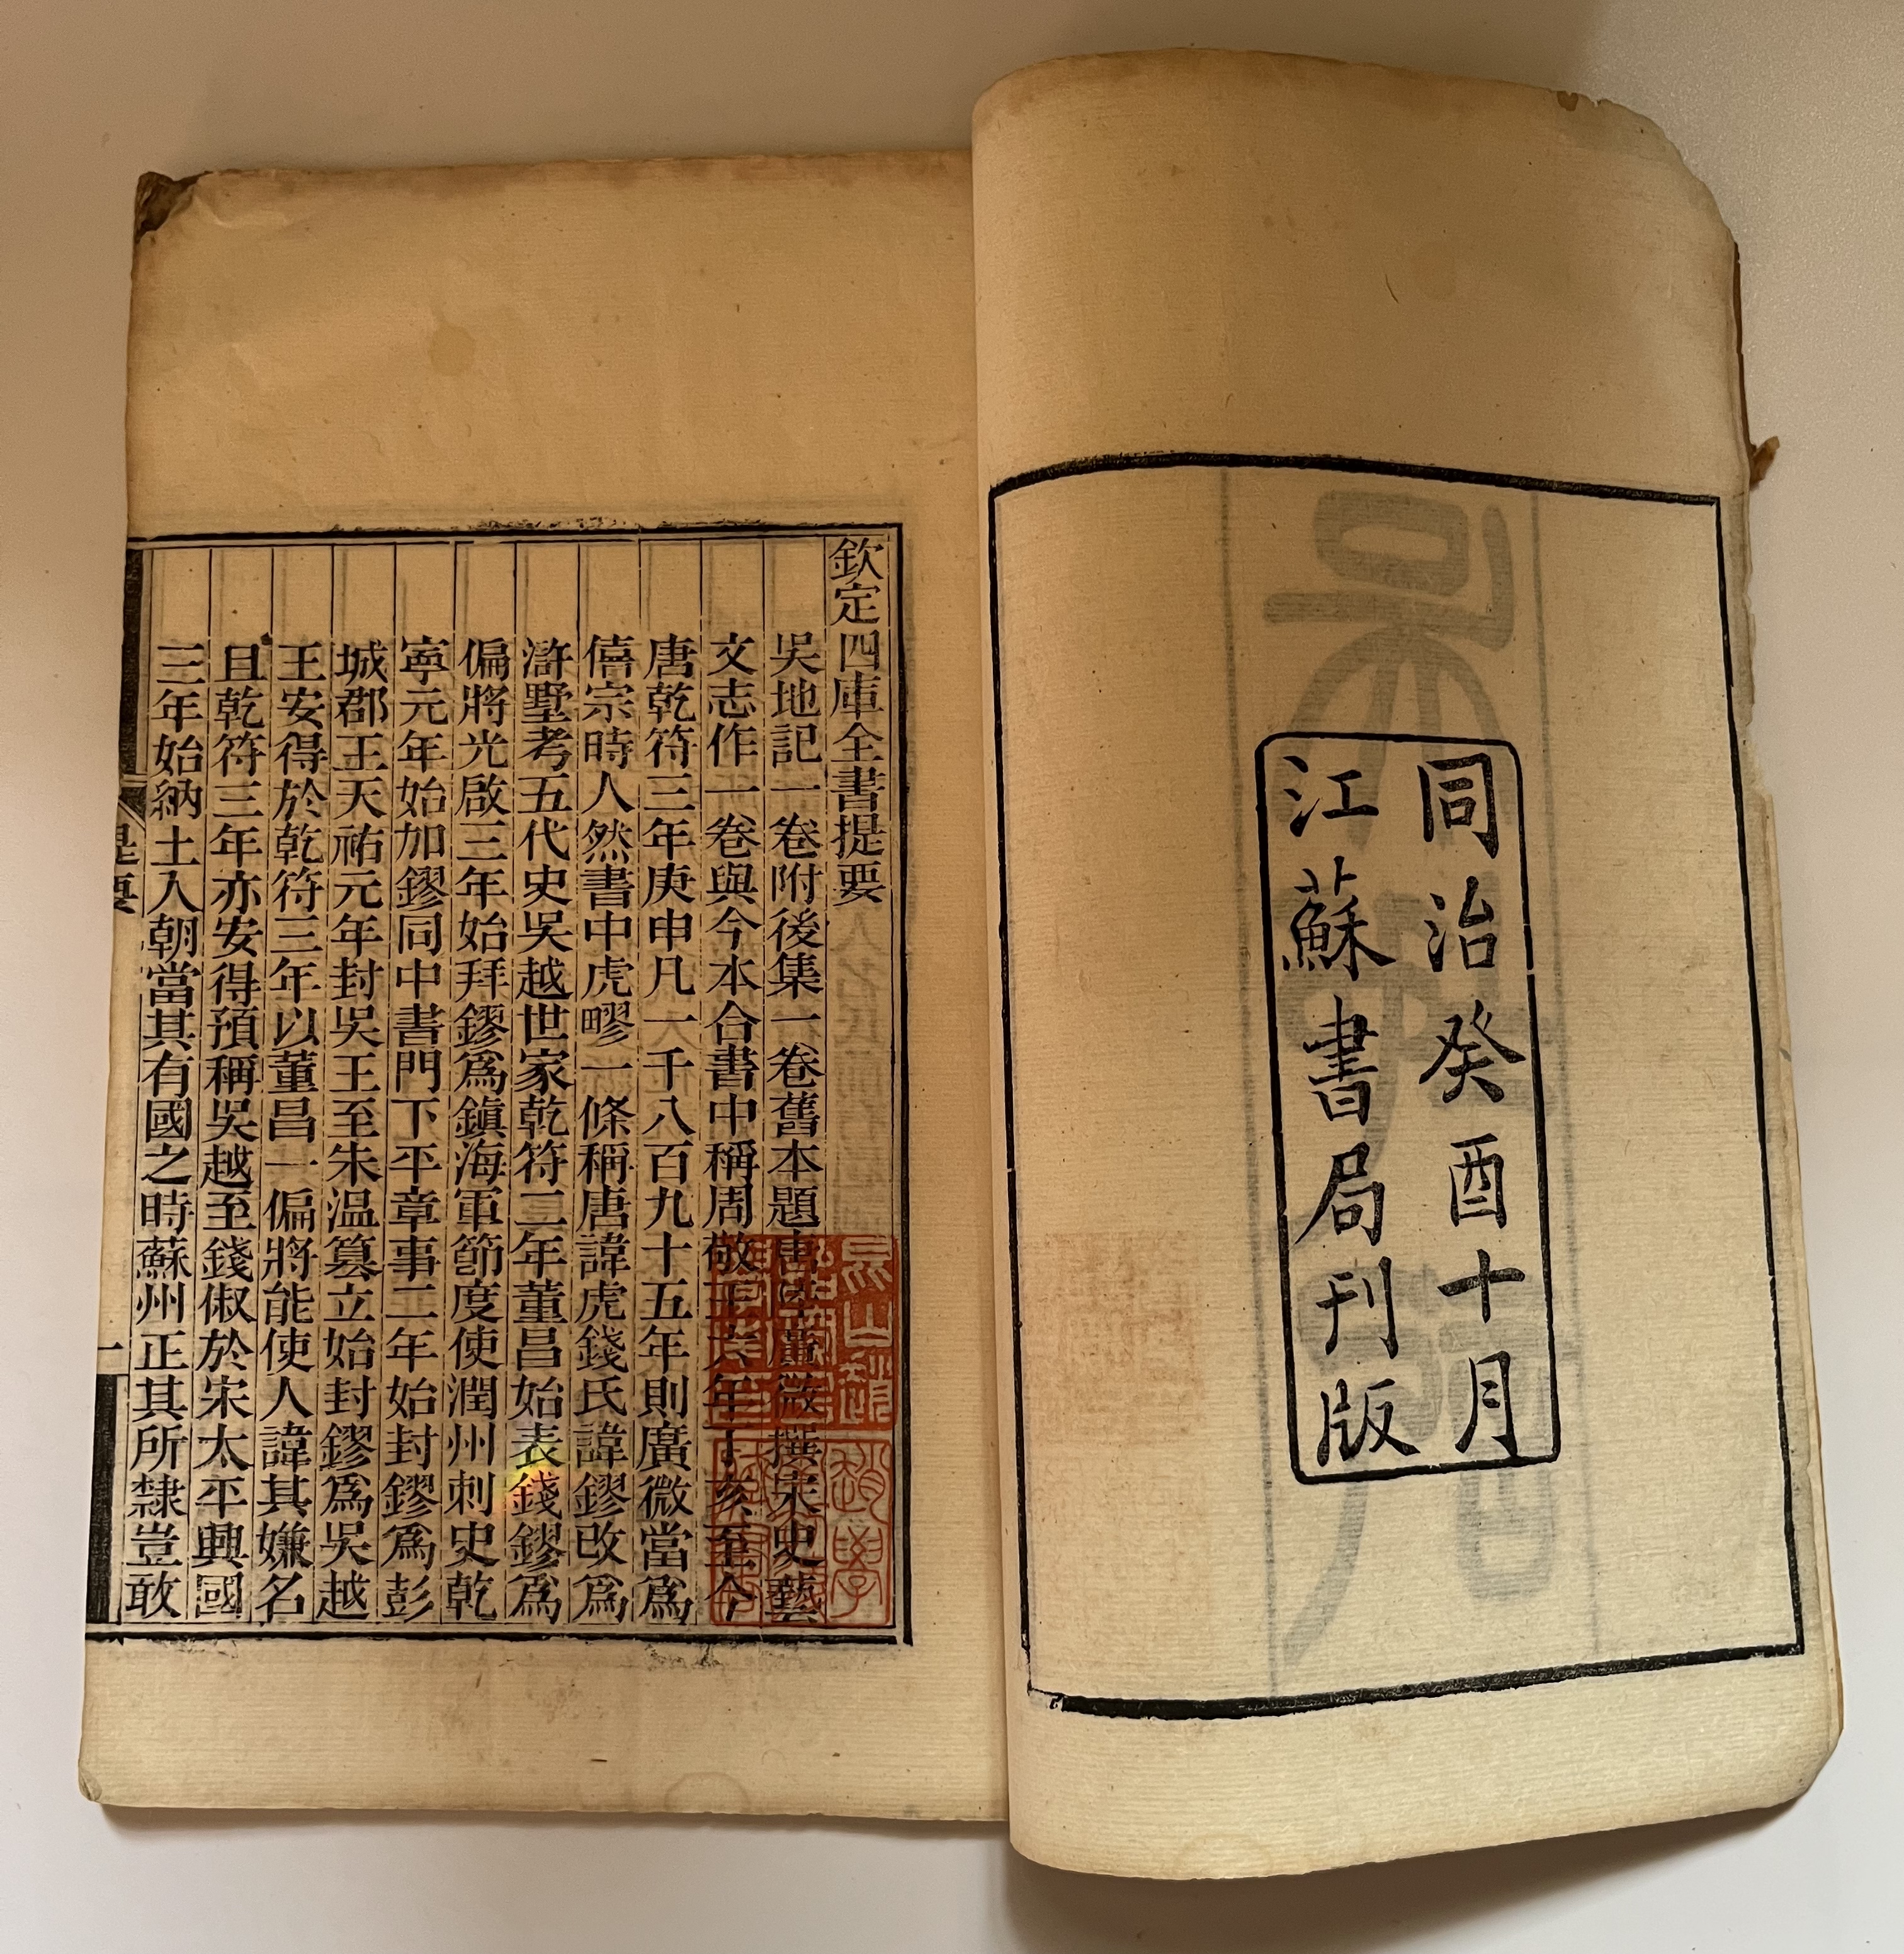 同治癸酉十月
江蘇書局刊版
欽定四庫全書提要
吳地記一卷附後集一卷舊本題唐陸廣微撰宋史藝
文志作一卷與今本合書中稱周敬王六年丁亥至今
唐乾符三年庚申凡一千八百九十五年則廣微當爲
僖宗時人然書中虎疁一條稱唐諱虎錢氏諱鏐改爲
滸墅考五代史吳越世家乾符二年董昌始表錢鏐爲
偏將光啟三年始拜鏐爲鎮海軍節度使潤州刺史乾
寧元年始加鏐同中書門下平章事二年始封鏐爲彭
城郡王天祐元年封吳王至朱温篡立始封鏐爲吳越
王安得於乾符三年以董昌一偏將能使人諱其嫌名
且乾符三年亦安得預稱吳越至錢俶於宋太平興國
三年始納土入朝當其有國之時蘇州正其所隸豈敢
提要
一